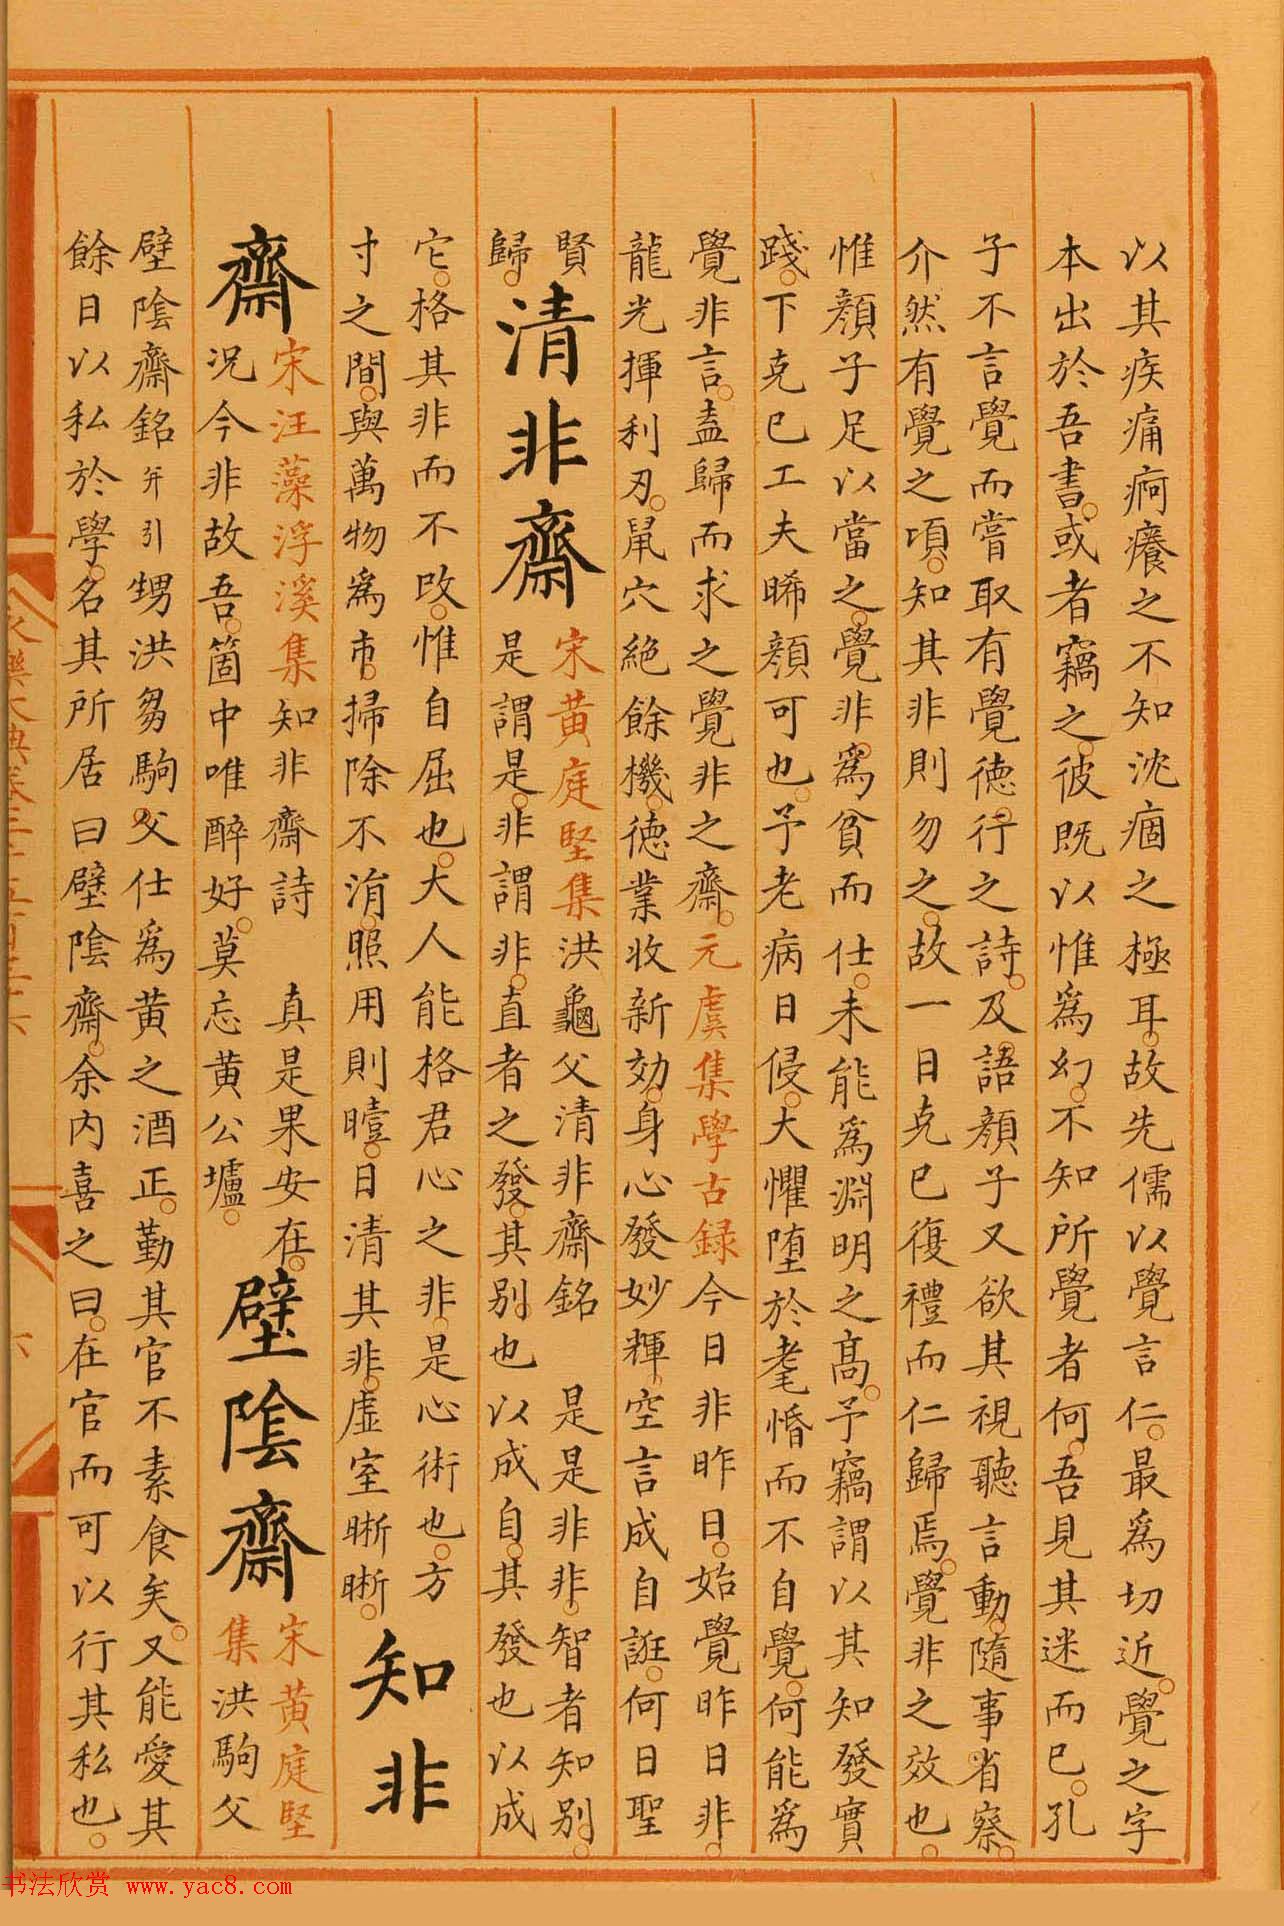 以其疾痛痾癢之不知沈痼之極耳。故先儒以覺言仁。最爲切近。覺之字
本出於吾書。或者竊之。彼既以惟爲幻。不知所覺者何。吾見其迷而已。孔
子不言覺而嘗取有覺德。行之詩。及語顏子又欲其視聽言動。隨事省察。
介然有覺之頃。知其非則勿之。故一日克巳復禮而仁歸焉。覺非之效也。
惟顏子足以當之。覺非爲貧而仕。未能爲淵明之高。予竊謂以其知發實
踐。下克巳工夫睎顏可也。予老病日侵。大懼墮於耄惛而不自覺。何能爲
覺非言。盍歸而求之覺非之齋。元虞集學古録今日非昨日。始覺昨日非。
龍光揮利刃。鼠穴絶餘機。德業收新効。身心發妙輝。空言成自誑。何日聖
賢
歸。
清非齋
宋黃庭堅集洪龜父清非齋銘 是是非非。智者知別。
是謂是。非謂非。直者之發。其別。也以成自。其發也以成
它。格其非而不改。惟自屈也。大人能格君心之非。是心術也。方
寸之間。與萬物爲市。掃除不湏。照用則曀。日清其非。虛室晣晣。
知非
齋
宋汪藻浮溪集知非齋詩 真是果安在。
況今非故吾。箇中唯醉好。莫忘黃公壚。
壁陰齋
宋黃庭堅
集洪駒父
壁陰齋銘并引甥洪芻駒父。仕爲黃之酒正。勤其官不素食矣。又能愛其
餘日以私於學。名其所居曰壁陰齋。余内喜之曰。在官而可以行其私也。
永樂大典卷之二千五百三十六
六
书法欣赏 www.yac8.com